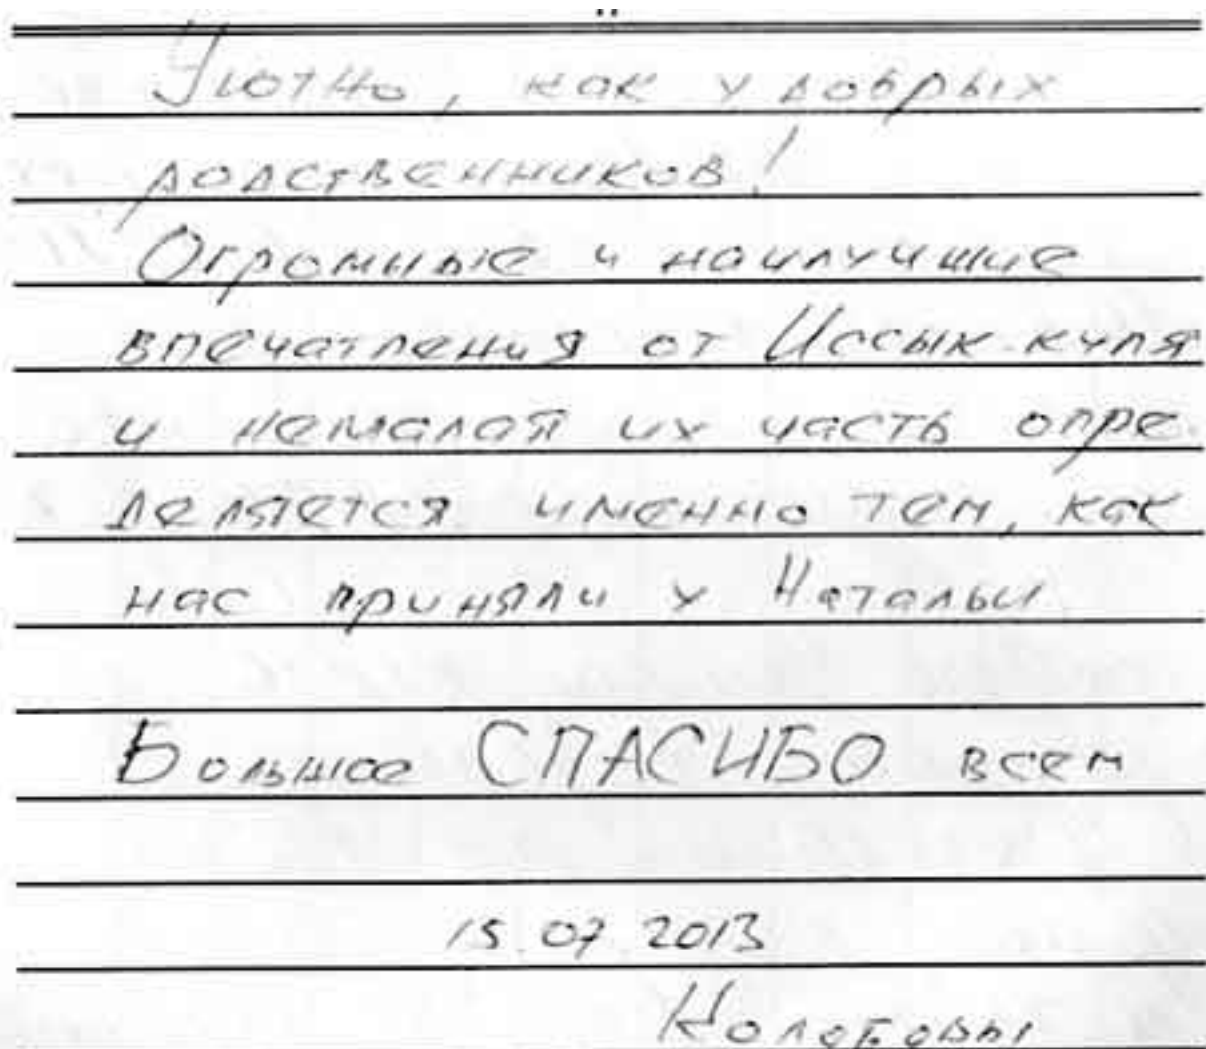 Уютно, как у добрых
родственников!
Огромные и наилучшие
впечатления от Иссык-куля
и немалая их часть опре-
деляется именно тем, как
нас приняли у Натальи
Большое СПАСИБО всем
15.07.2013
Колобовы